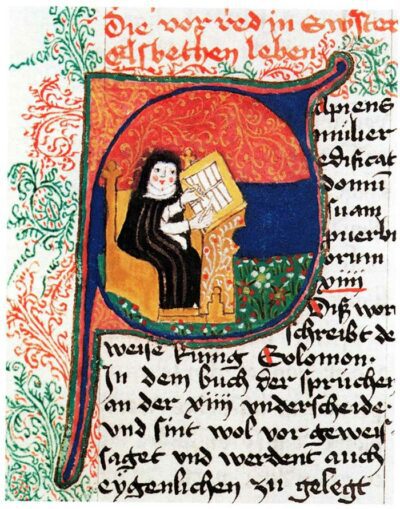 Die vor red in Swester
elsbethen leben
Sapiens
mulier
edificat
domum
suam
puerbi
orum
xiiii
Diß wort
schreibt de
weise kunig Solomon.
In dem buch der sprüchen
an der xiiii vnderscheide
vnd sint wol vor geweis
saget vnd werdent auch
eÿgenlichen zu gelegt